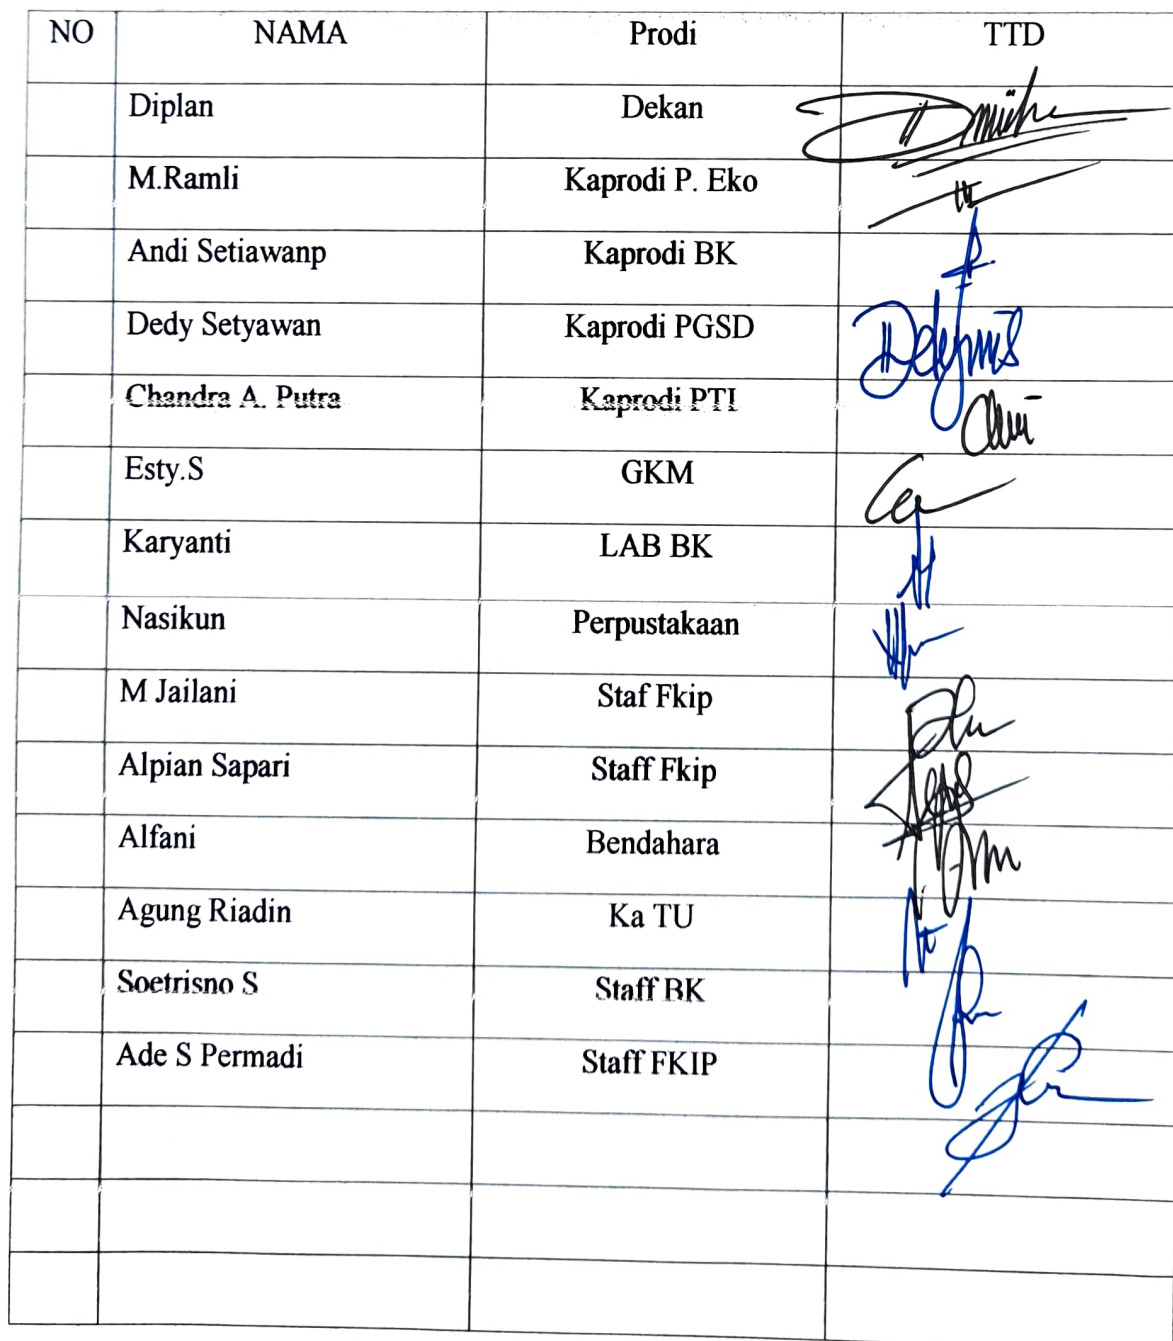 NO NAMA Prodi TTD
Diplan Dekan
M.Ramli Kaprodi P. Eko
Andi Setiawanp Kaprodi BK
Dedy Setyawan Kaprodi PGSD
Chandra A. Putra Kaprodi PTI
Esty.S GKM
Karyanti LAB BK
Nasikun Perpustakaan
M Jailani Staf Fkip
Alpian Sapari Staff Fkip
Alfani Bendahara
Agung Riadin Ka TU
Soetrisno S Staff BK
Ade S Permadi Staff FKIP